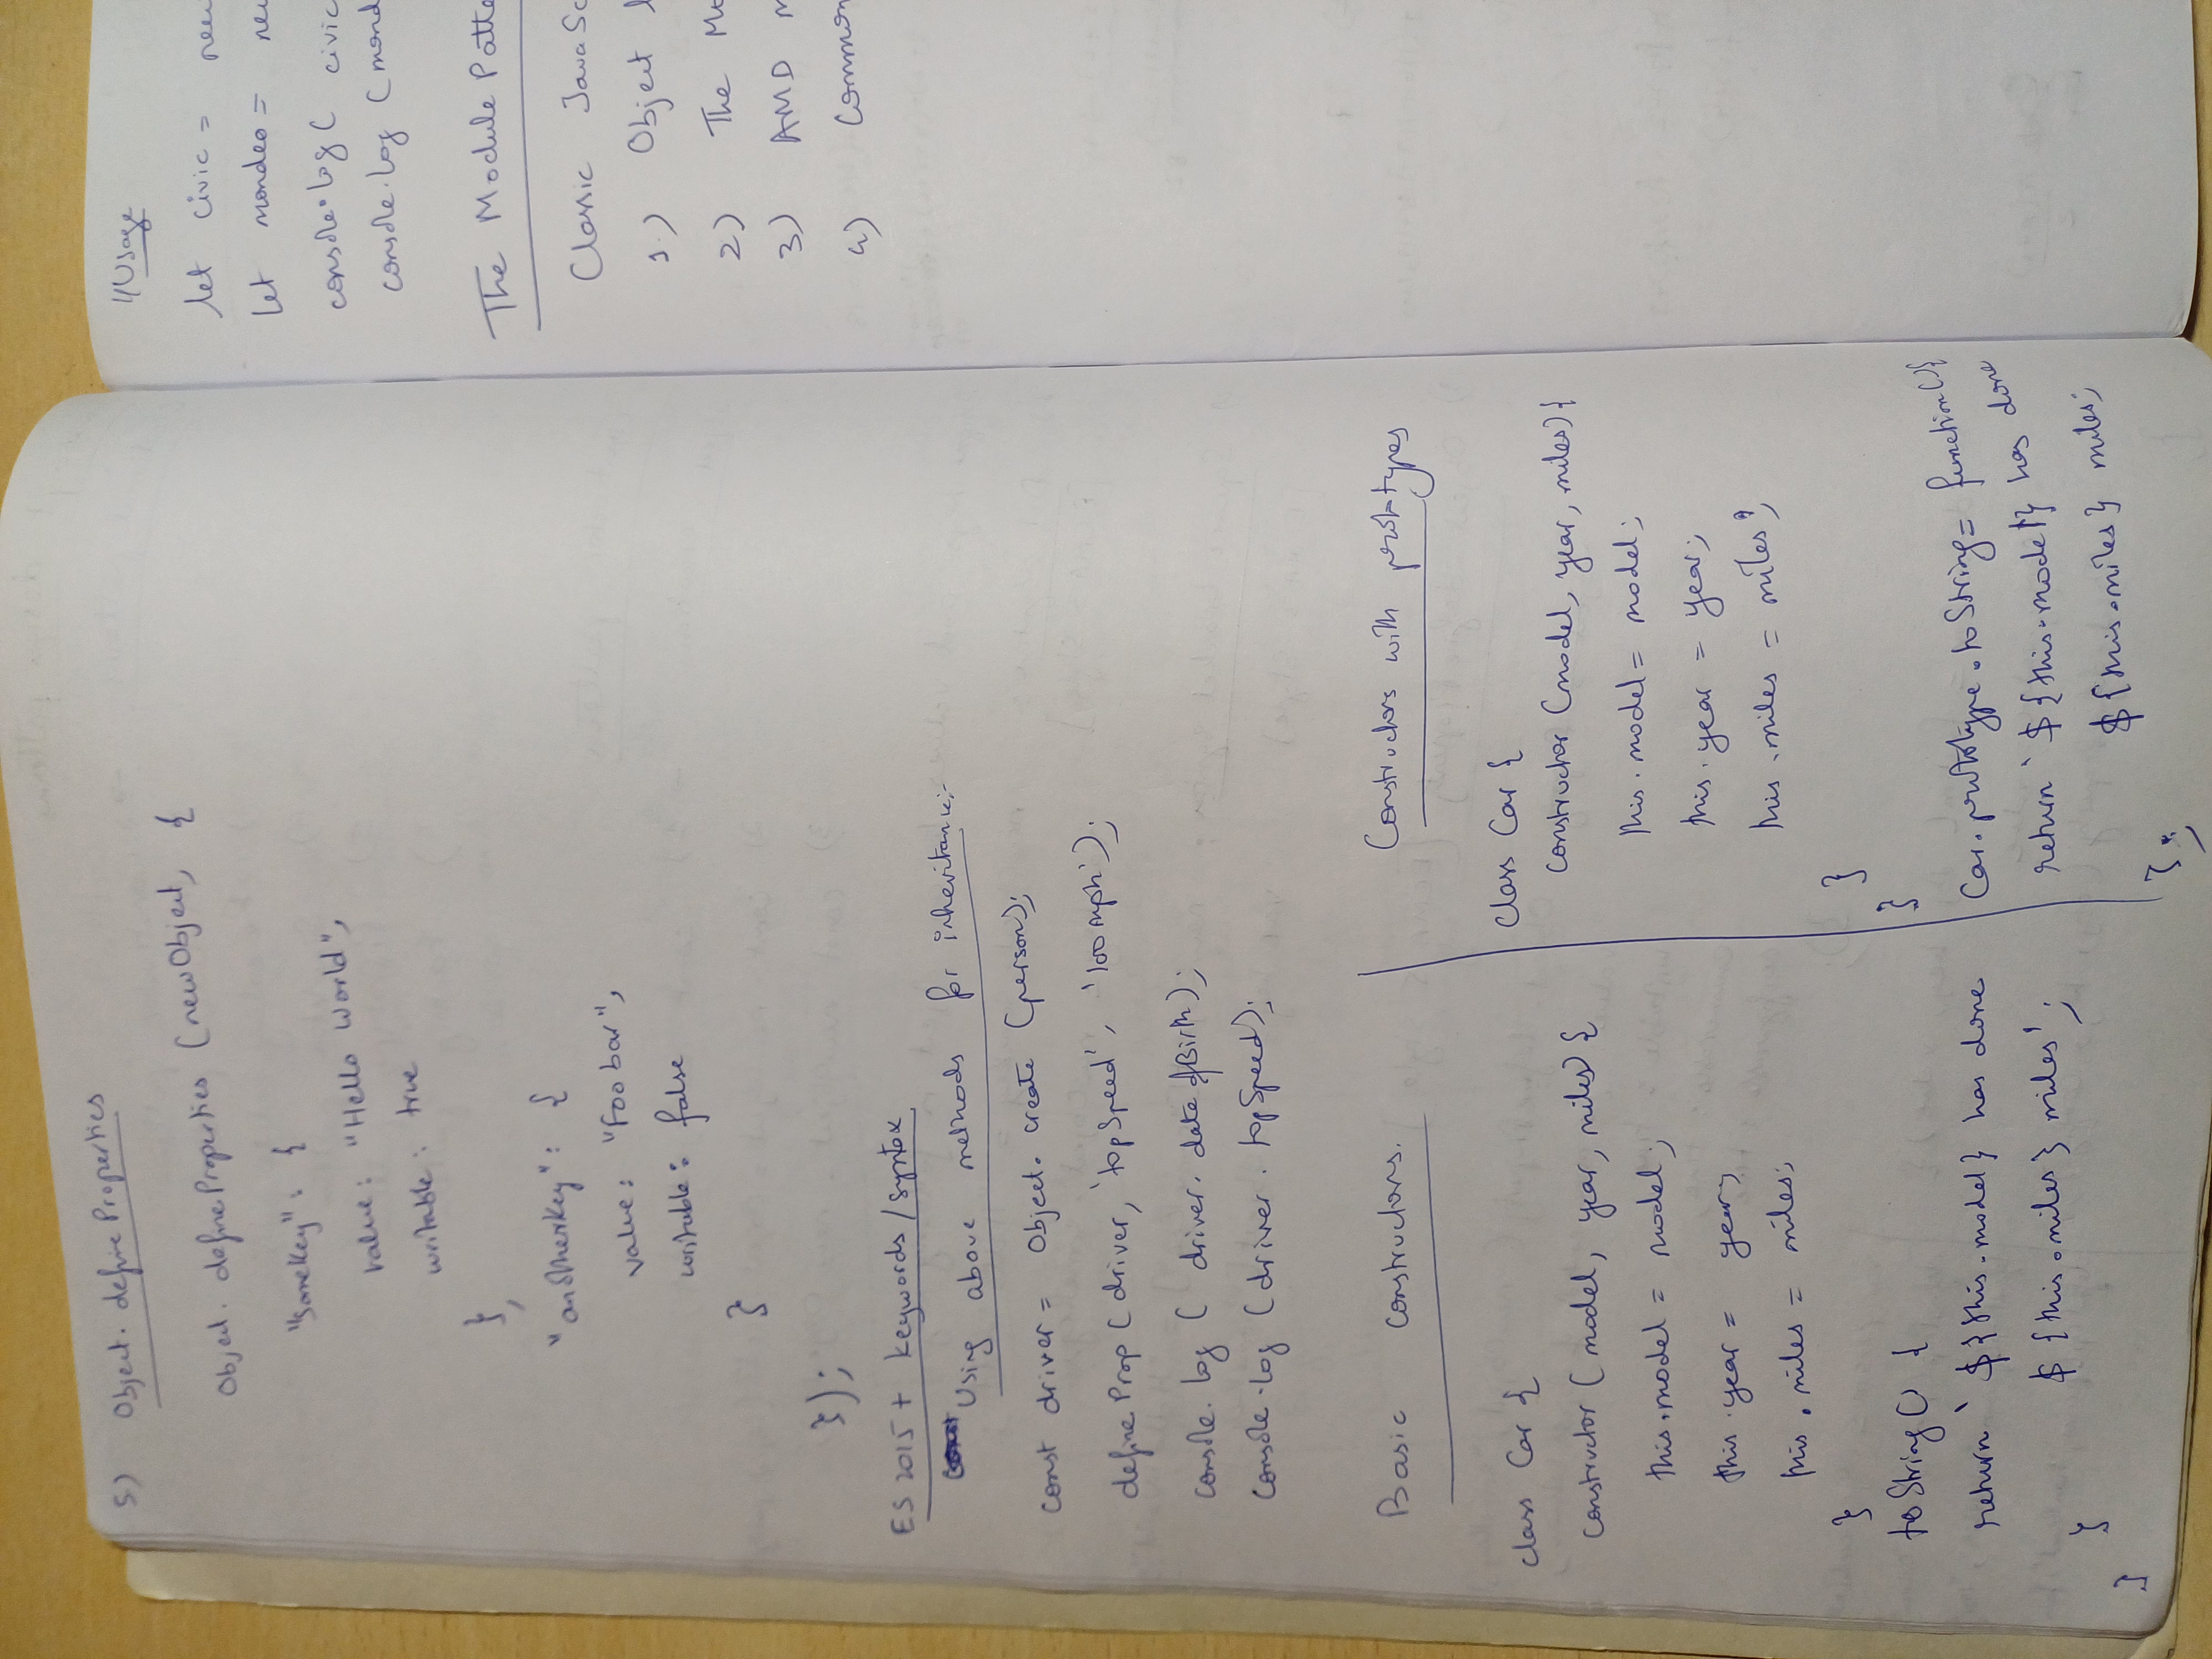 5) Object. defineProperties
Object. defineProperties (newObject, {
"someKey": {
value: "Hello World",
writable: true
},
"anotherKey": {
value: "Foo bar",
writable: false
}
});
ES 2015 + keywords / syntax
Using above methods for inheritance:-
const driver = Object. create (person);
defineProp (driver, 'topSpeed', '100 mph');
console. log ( driver. dateOfBirth);
console.log (driver. topSpeed);
Basic constructors.
class Car {
constructor (model, year, miles) {
this.model = model;
this.year = year;
this.miles = miles;
}
toString() {
return ` ${this.model} has done
${this.miles} miles';
}
}
Constructors with prototypes
class Car {
constructor (model, year, miles) {
this.model = model;
this.year = year;
this.miles = miles;
}
}
Car.prototype.toString = function() {
return ` ${this.model} has done
${this.miles} miles;
};
//Usage
let civic =
let mondeo =
console.log ( civic
console.log (
The Module
Classic
1.) Object
2) The
3) AMD
4)